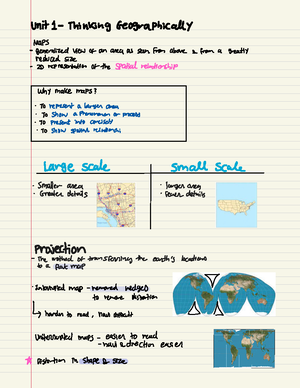 Unit 1 - Thinking Geographically
Maps
- Generalized view of an area as seen from above & from a greatly
reduced size
- 2D representation of the spatial relationship
Why make maps?
· To represent a larger area
· To show a phenomenon or process
· To present info concisely
· To show spatial relations
Large scale
Small scale
- Smaller area
- Greater details
- larger area
- Fewer details
Projection
- The method of transferring the earth's locations
to a flat map
- Interrupted map - removed wedges
to remove distortion
↳ harder to read, hard
Uninterrupted maps - easier to read
- nav & direction easier
Distortion in shape & size